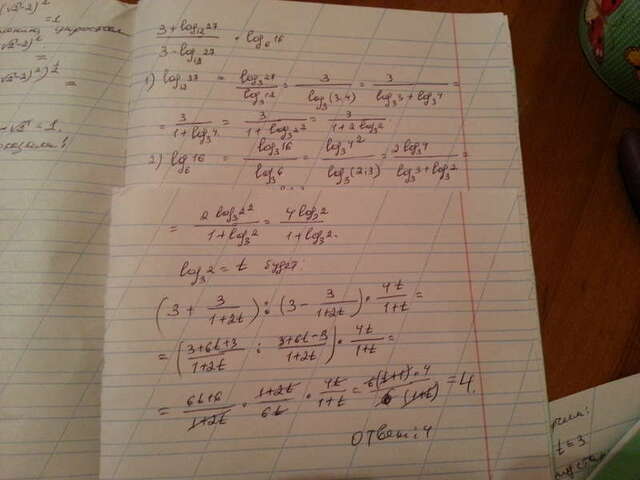 (√2-2)²
=1
-2)²
=
-2)²) t
=
-√2 = 1.
3+log₁₂27
3-log₁₂27 · log₆16
1) log₁₂27 = log₃27/log₃12 = 3/log₃(3·4) = 3/(log₃3+log₃4) =
= 3/(1+log₃4) = 3/(1+log₃2²) = 3/(1+2log₃2).
2) log₆16 = log₃16/log₃6 = log₃4²/log₃(2·3) = 2log₃4/(log₃3+log₃2) =
= 2log₃2²/(1+log₃2) = 4log₃2/(1+log₃2).
log₃2 = t будет:
(3 + 3/(1+2t)) : (3 - 3/(1+2t)) · 4t/(1+t) =
= (3+6t+3)/(1+2t) : (3+6t-3)/(1+2t)) · 4t/(1+t) =
= (6t+6)/(1+2t) · (1+2t)/6t · 4t/(1+t) = 6(t+1)·4/6(1+t) = 4.
Ответ: 4
t=3